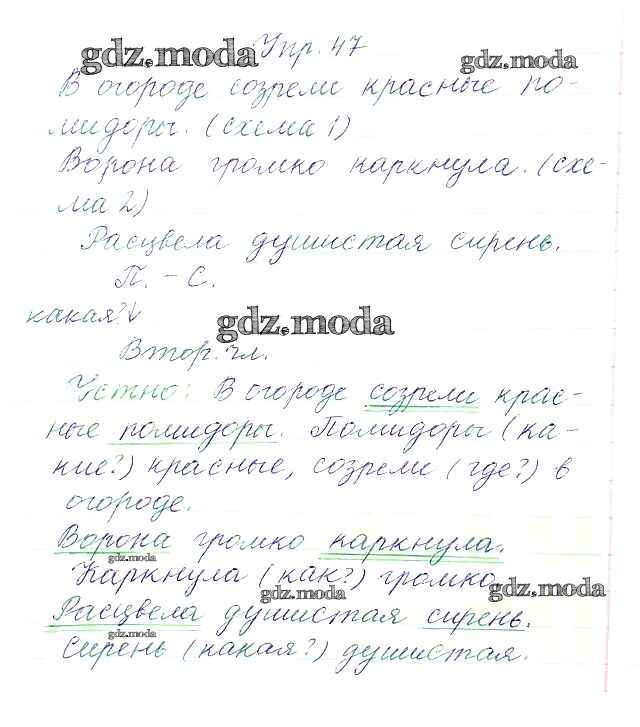 gdz.moda Упр. 47 gdz.moda
В огороде созрели красные по-
мидоры. (схема 1)
Ворона громко каркнула. (схе-
ма 2)
Расцвела душистая сирень.
П. - С.
какая?↓
gdz.moda
Втор. чл.
Устно: В огороде созрели крас-
ные помидоры. Помидоры (ка-
кие?) красные, созрели (где?) в
огороде.
Ворона громко каркнула.
gdz.moda
Каркнула (как?) громко
gdz.moda gdz.moda
Расцвела душистая сирень.
gdz.moda
Сирень (какая?) душистая.